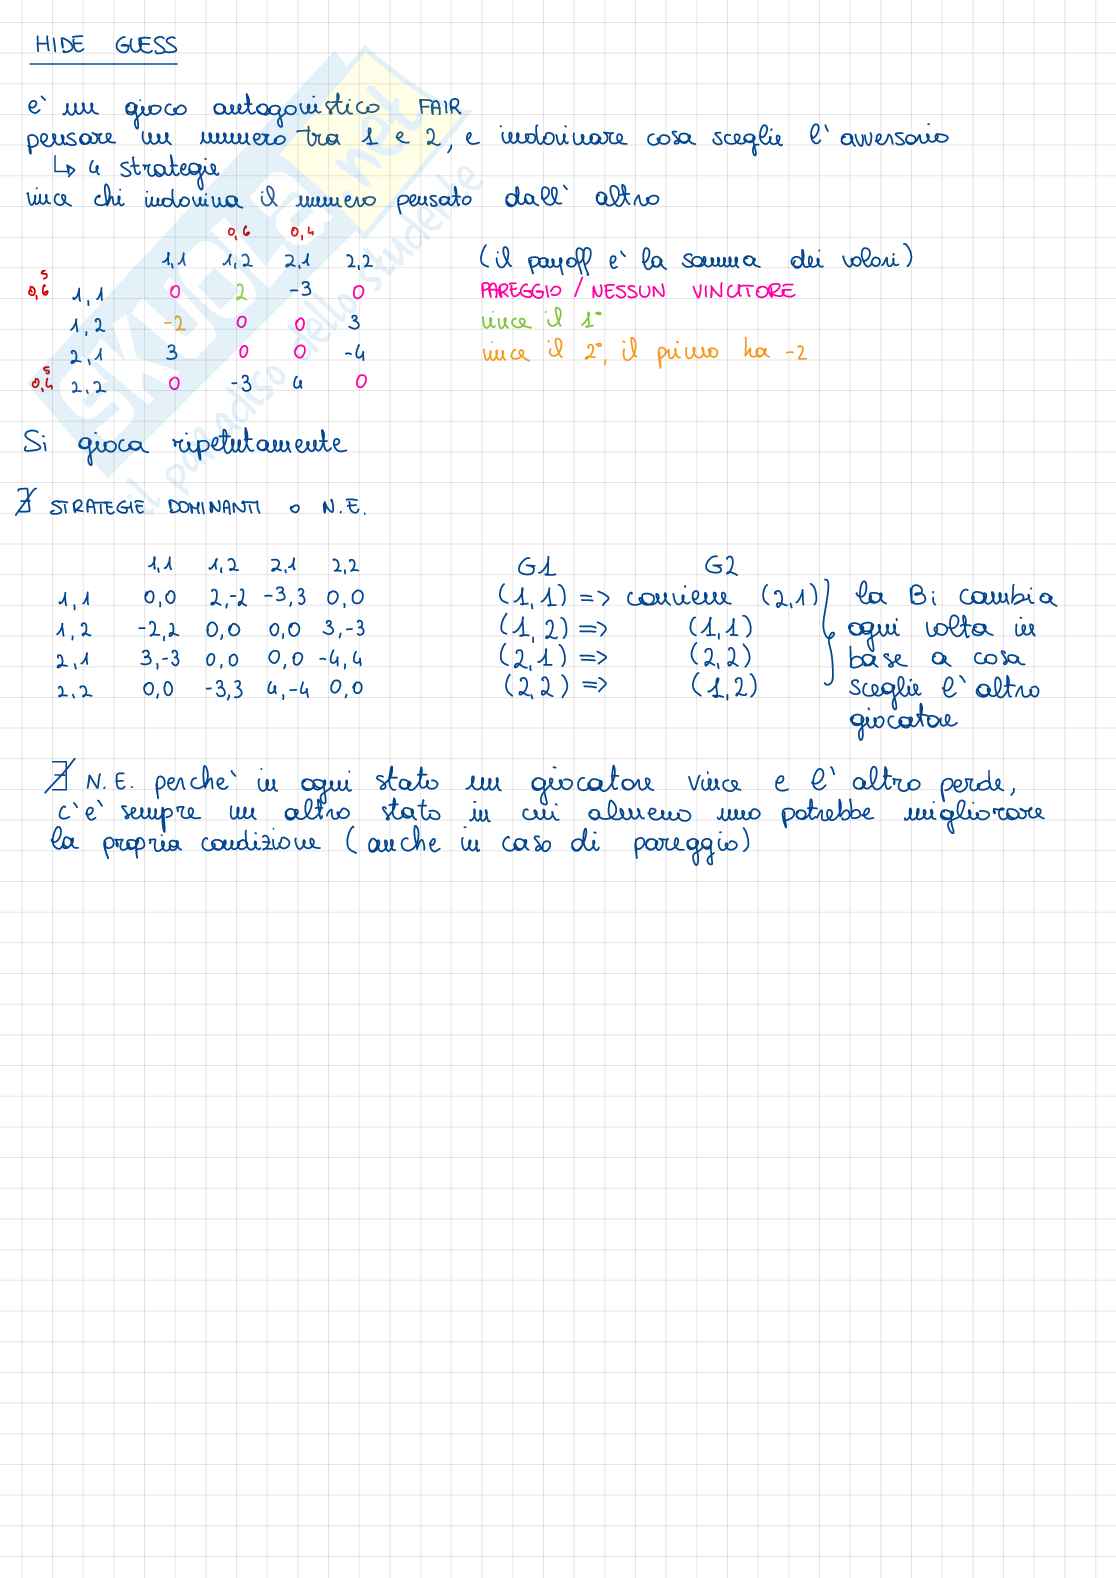 HIDE GUESS
e' un gioco antagonistico FAIR
pensare un numero tra 1 e 2, e indovinare cosa sceglie l'avversario
↳ 4 strategie
vince chi indovina il numero pensato dall' altro
0,6 0,4
1,1 1,2 2,1 2,2 (il payoff e' la somma dei valori)
s
0,6 1,1 0 2 -3 0 PAREGGIO / NESSUN VINCITORE
1,2 -2 0 0 3 vince il 1°
2,1 3 0 0 -4 vince il 2°, il primo ha -2
s
0,4 2,2 0 -3 4 0
Si gioca ripetutamente
∄ STRATEGIE DOMINANTI o N.E.
1,1 1,2 2,1 2,2 G1 G2
1,1 0,0 2,-2 -3,3 0,0 (1,1) => conviene (2,1) la Bi cambia
1,2 -2,2 0,0 0,0 3,-3 (1,2) => (1,1) ogni volta in
2,1 3,-3 0,0 0,0 -4,4 (2,1) => (2,2) base a cosa
2,2 0,0 -3,3 4,-4 0,0 (2,2) => (1,2) sceglie l'altro
giocatore
∄ N.E. perche' in ogni stato un giocatore vince e l' altro perde,
c'e' sempre un altro stato in cui almeno uno potrebbe migliorare
la propria condizione (anche in caso di pareggio)
SKUOLA.net
il paradiso dello studente